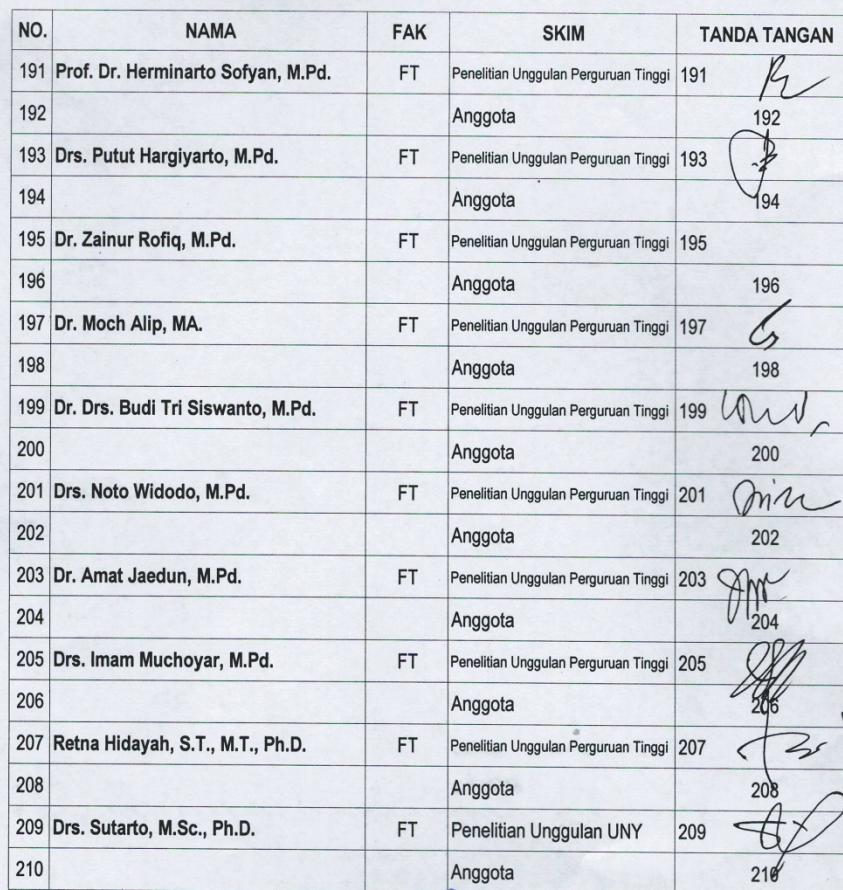 NO. NAMA FAK SKIM TANDA TANGAN
191 Prof. Dr. Herminarto Sofyan, M.Pd. FT Penelitian Unggulan Perguruan Tinggi 191
192 Anggota 192
193 Drs. Putut Hargiyarto, M.Pd. FT Penelitian Unggulan Perguruan Tinggi 193
194 Anggota 194
195 Dr. Zainur Rofiq, M.Pd. FT Penelitian Unggulan Perguruan Tinggi 195
196 Anggota 196
197 Dr. Moch Alip, MA. FT Penelitian Unggulan Perguruan Tinggi 197
198 Anggota 198
199 Dr. Drs. Budi Tri Siswanto, M.Pd. FT Penelitian Unggulan Perguruan Tinggi 199
200 Anggota 200
201 Drs. Noto Widodo, M.Pd. FT Penelitian Unggulan Perguruan Tinggi 201
202 Anggota 202
203 Dr. Amat Jaedun, M.Pd. FT Penelitian Unggulan Perguruan Tinggi 203
204 Anggota 204
205 Drs. Imam Muchoyar, M.Pd. FT Penelitian Unggulan Perguruan Tinggi 205
206 Anggota 206
207 Retna Hidayah, S.T., M.T., Ph.D. FT Penelitian Unggulan Perguruan Tinggi 207
208 Anggota 208
209 Drs. Sutarto, M.Sc., Ph.D. FT Penelitian Unggulan UNY 209
210 Anggota 210